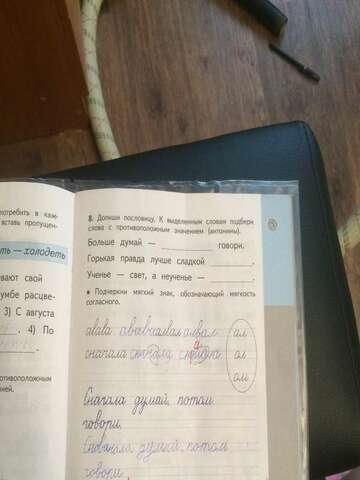 потребить в каж-
вставь пропущен-
ть — холодеть
вают свой
умбе расцве-
3) С августа
4) По
ротивоположным
ней.
8. Допиши пословицу. К выделенным словам подбери
слова с противоположным значением (антонимы).
Больше думай — говори.
Горькая правда лучше сладкой
Ученье — свет, а неученье —
• Подчеркни мягкий знак, обозначающий мягкость
согласного.
ал
сначала сначала ол
ом
Сначала думай, потом
говори.
думай, потом
говори.